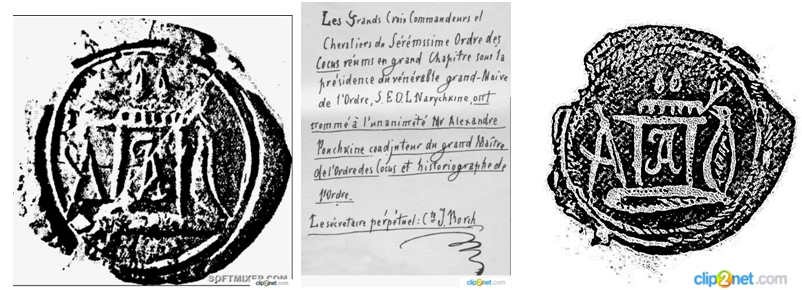 A
SOFTMIXER.COM
clip2net.com
Les Grands Croix Commandeurs et
Chevaliers du Sérénissime Ordre des
Cocus réunis en grand Chapitre sous la
présidence du vénérable grand-Maive
de l'Ordre, S.E.D.L Narychkine, ont
nommé à l'unanimité Mr Alexandre
Pouchkine coadjuteur du grand Maître
de l'Ordre des Cocus et historiographe de
l'Ordre.
Le sécrétaire perpétuel: Cte J. Borch
clip2net.com
A
clip2net.com